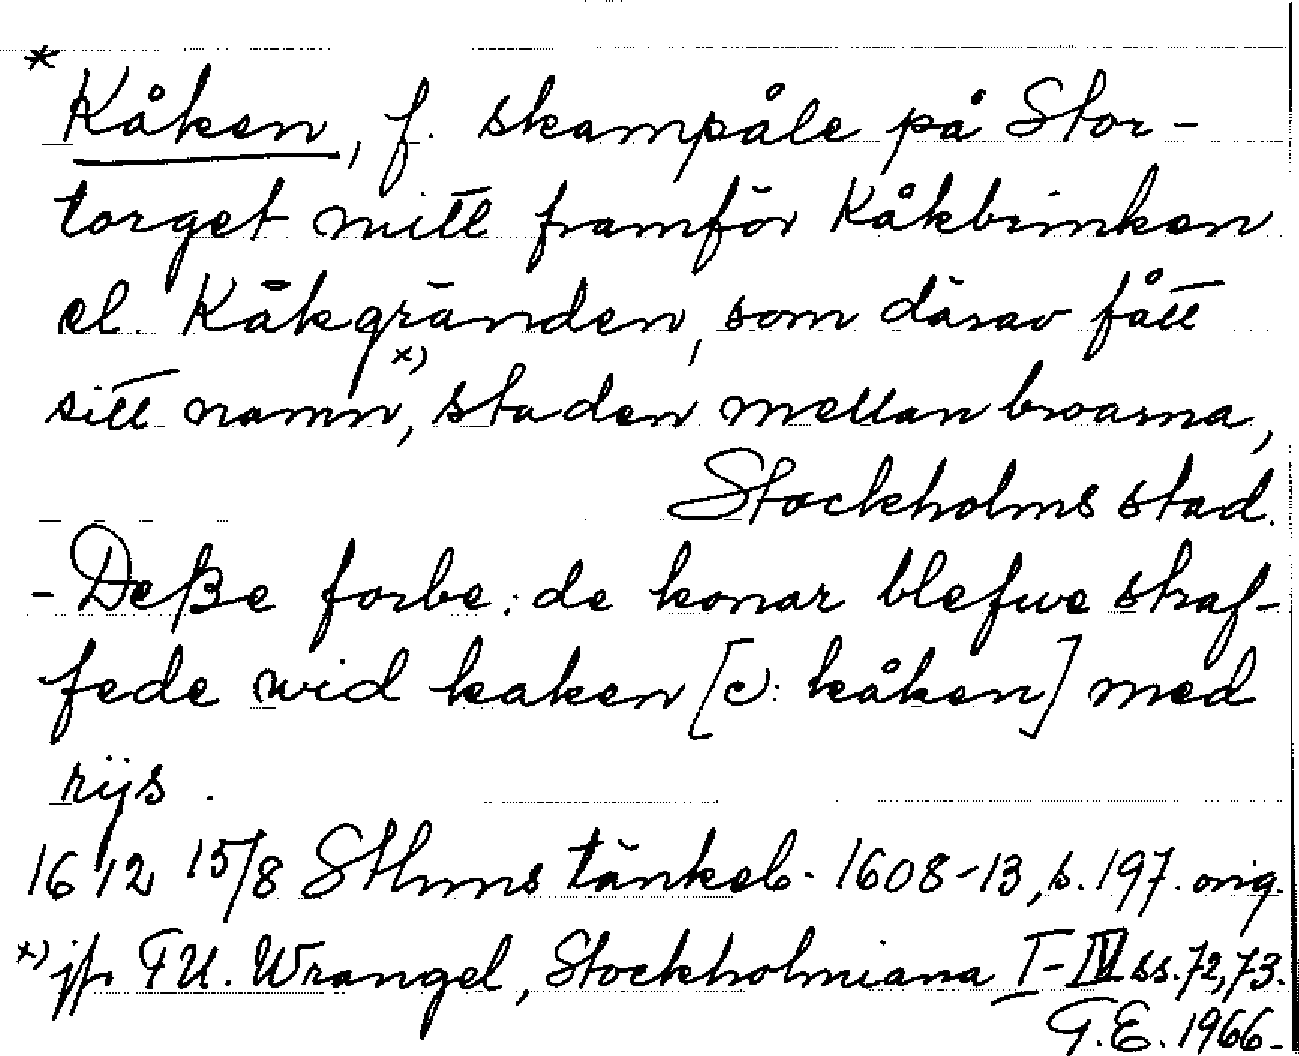 *
Kåken, f. skampåle på Stor-
torget mitt framför Kåkbrinken
el. Kåkgränden, som därav fått
sitt namn,x) staden mellan broarna,
Stockholms stad.
- Deße forbe: de konar blefwe straf-
fede wid kaken [ɔ: kåken] med
rijs.
1612 15/8 Sthms tänkeb. 1608-13, s. 197. orig.
x) jfr F.U. Wrangel, Stockholmiana I-IV ss. 72, 73.
G.E. 1966.-